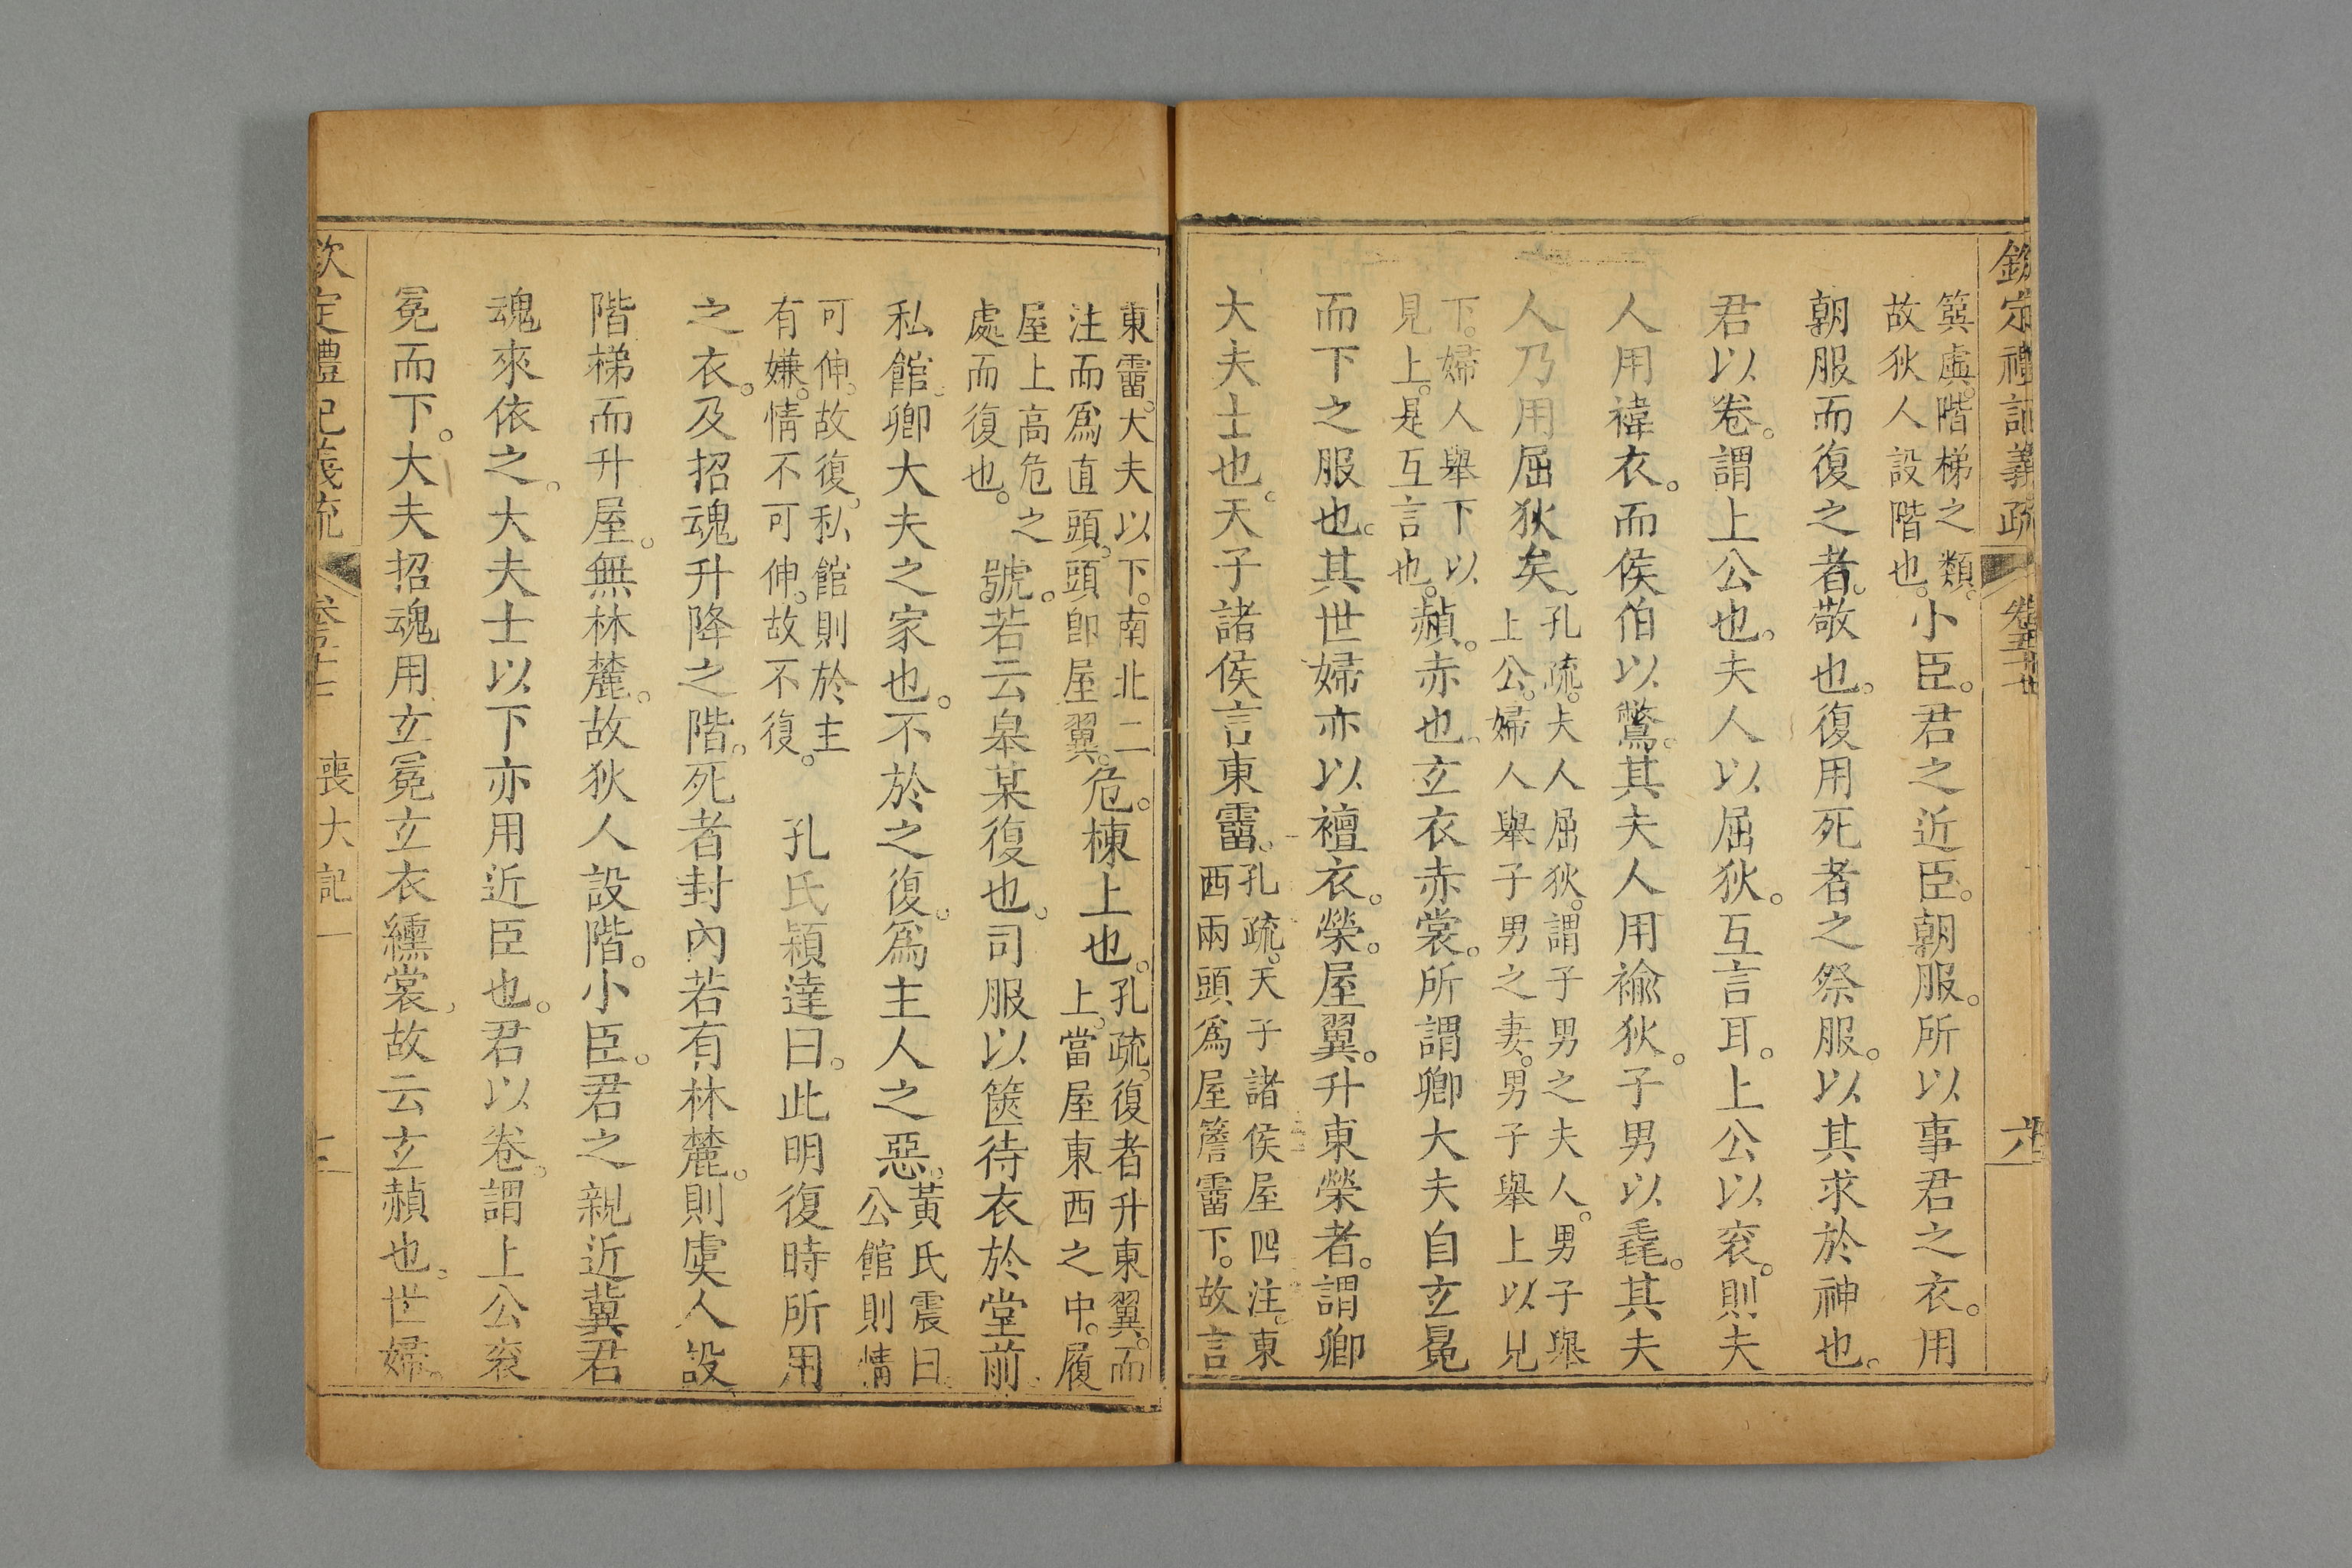 欽定禮記義疏 卷五十七 六
簨虡。階梯之類。
故狄人設階也。小臣。君之近臣。朝服。所以事君之衣。用
朝服而復之者。敬也。復用死者之祭服。以其求於神也。
君以卷。謂上公也。夫人以屈狄。互言耳。上公以衮。則夫
人用褘衣。而侯伯以鷩。其夫人用褕狄。子男以毳。其夫
人乃用屈狄矣。孔疏。夫人屈狄。謂子男之夫人。男子舉
上公。婦人舉子男之妻。男子舉上以見
下。婦人舉下以
見上。是互言也。赬。赤也。玄衣赤裳。所謂卿大夫自玄冕
而下之服也。其世婦亦以襢衣。榮。屋翼。升東榮者。謂卿
大夫士也。天子諸侯言東霤。孔疏。天子諸侯屋四注。東
西兩頭爲屋簷霤下。故言
東霤。大夫以下。南北二
注而爲直頭。頭卽屋翼。危。棟上也。孔疏。復者升東翼。而
上。當屋東西之中。履
屋上高危之
處而復也。號。若云皋某復也。司服以篋待衣於堂前。
私館。卿大夫之家也。不於之復。爲主人之惡。黃氏震曰。
公館則情
可伸。故復。私館則於主
有嫌。情不可伸。故不復。 孔氏穎達曰。此明復時所用
之衣。及招魂升降之階。死者封內若有林麓。則虞人設
階梯而升屋。無林麓。故狄人設階。小臣。君之親近冀君
魂來依之。大夫士以下亦用近臣也。君以卷。謂上公衮
冕而下。大夫招魂用玄冕玄衣纁裳。故云玄赬也。世婦。
欽定禮記義疏 卷五十七 喪大記一